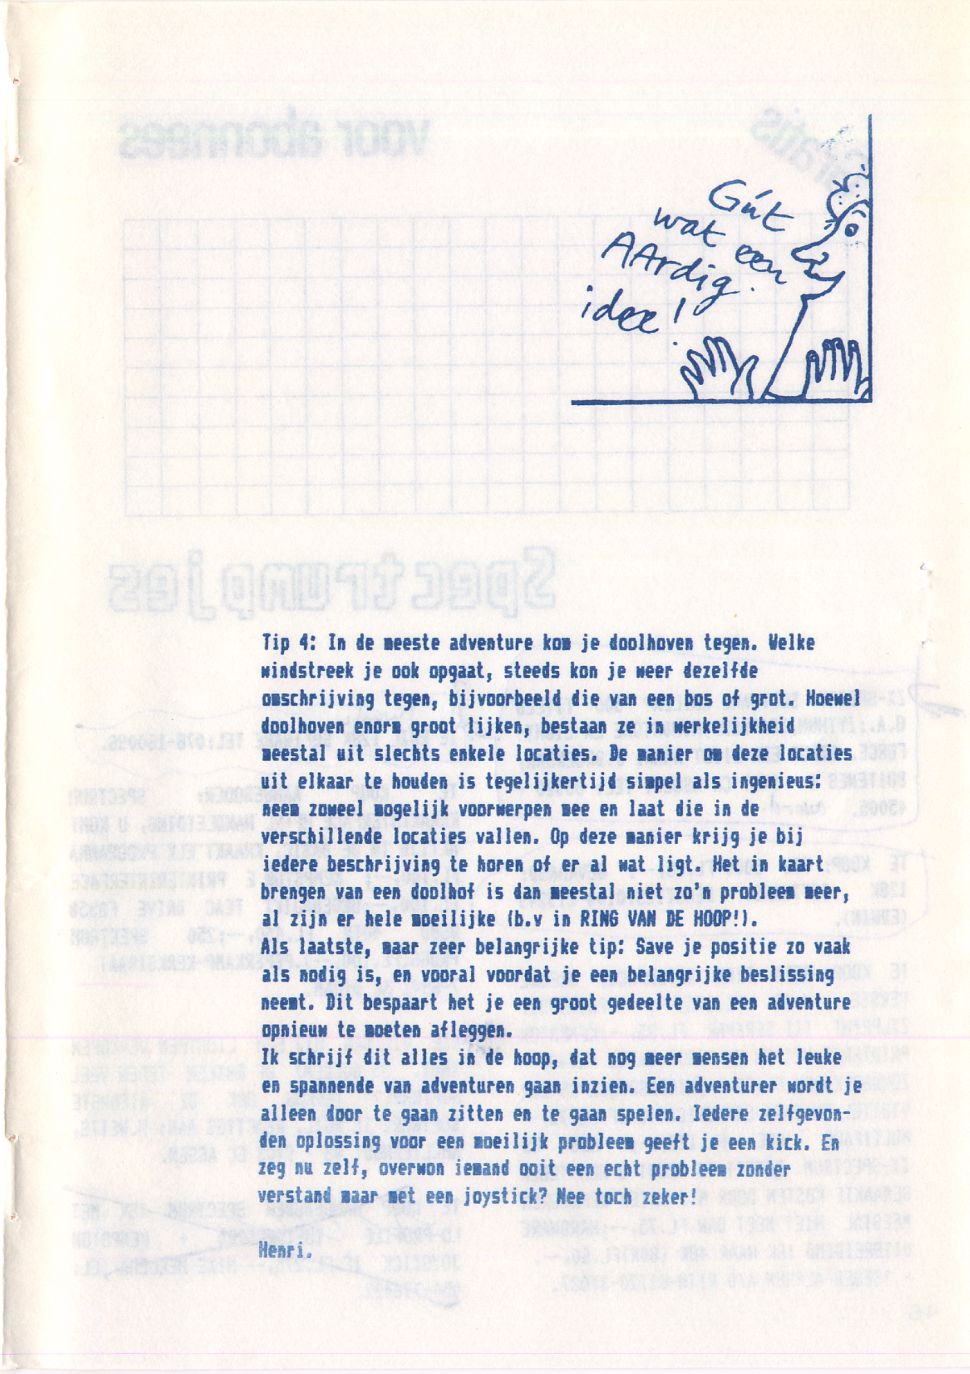 Gút
wat een
AArdig
idee!
Tip 4: In de meeste adventure kom je doolhoven tegen. Welke
windstreek je ook opgaat, steeds kon je weer dezelfde
omschrijving tegen, bijvoorbeeld die van een bos of grot. Hoewel
doolhoven enorm groot lijken, bestaan ze in werkelijkheid
meestal uit slechts enkele locaties. De manier om deze locaties
uit elkaar te houden is tegelijkertijd simpel als ingenieus:
neem zoweel mogelijk voorwerpen mee en laat die in de
verschillende locaties vallen. Op deze manier krijg je bij
iedere beschrijving te horen of er al wat ligt. Het in kaart
brengen van een doolhof is dan meestal niet zo'n probleem meer,
al zijn er hele moeilijke (b.v in RING VAN DE HOOP!).
Als laatste, maar zeer belangrijke tip: Save je positie zo vaak
als nodig is, en vooral voordat je een belangrijke beslissing
neemt. Dit bespaart het je een groot gedeelte van een adventure
opnieuw te moeten afleggen.
Ik schrijf dit alles in de hoop, dat nog meer mensen het leuke
en spannende van adventuren gaan inzien. Een adventurer wordt je
alleen door te gaan zitten en te gaan spelen. Iedere zelfgevon-
den oplossing voor een moeilijk probleem geeft je een kick. En
zeg nu zelf, overwon iemand ooit een echt probleem zonder
verstand maar met een joystick? Nee toch zeker!
Henri.